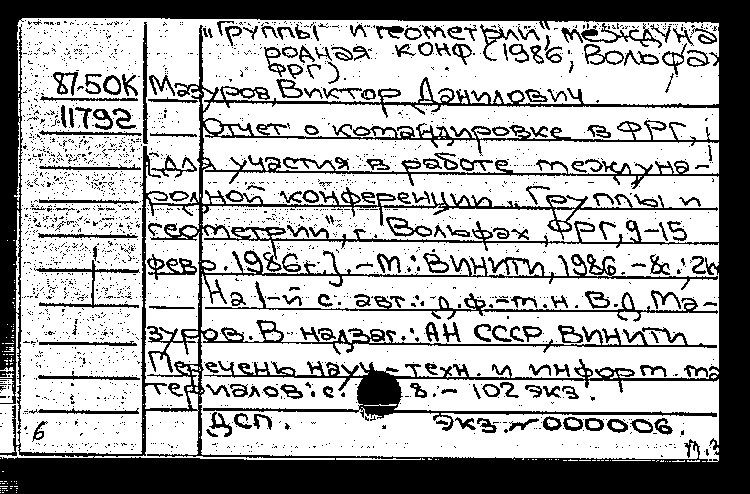 „Группы и геометрии", междуна
родная конф (1986; Вольфах
ФРГ)
87-50К Мазуров, Виктор Данилович.
11792 Отчет о командировке в ФРГ,
[для участия в работе междуна-
родной конференции „Группы и
геометрии", г. Вольфах, ФРГ, 9-15
февр. 1986г.]. - М.: ВИНИТИ, 1986. - 8с.;
На 1-й с. авт.: д.ф.-м.н. В.Д. Ма-
зуров. В надзаг.: АН СССР, ВИНИТИ
Перечень науч.-техн. и информ. ма
териалов: с. 8. - 102 экз.
ДСП. экз. № 000006.
6